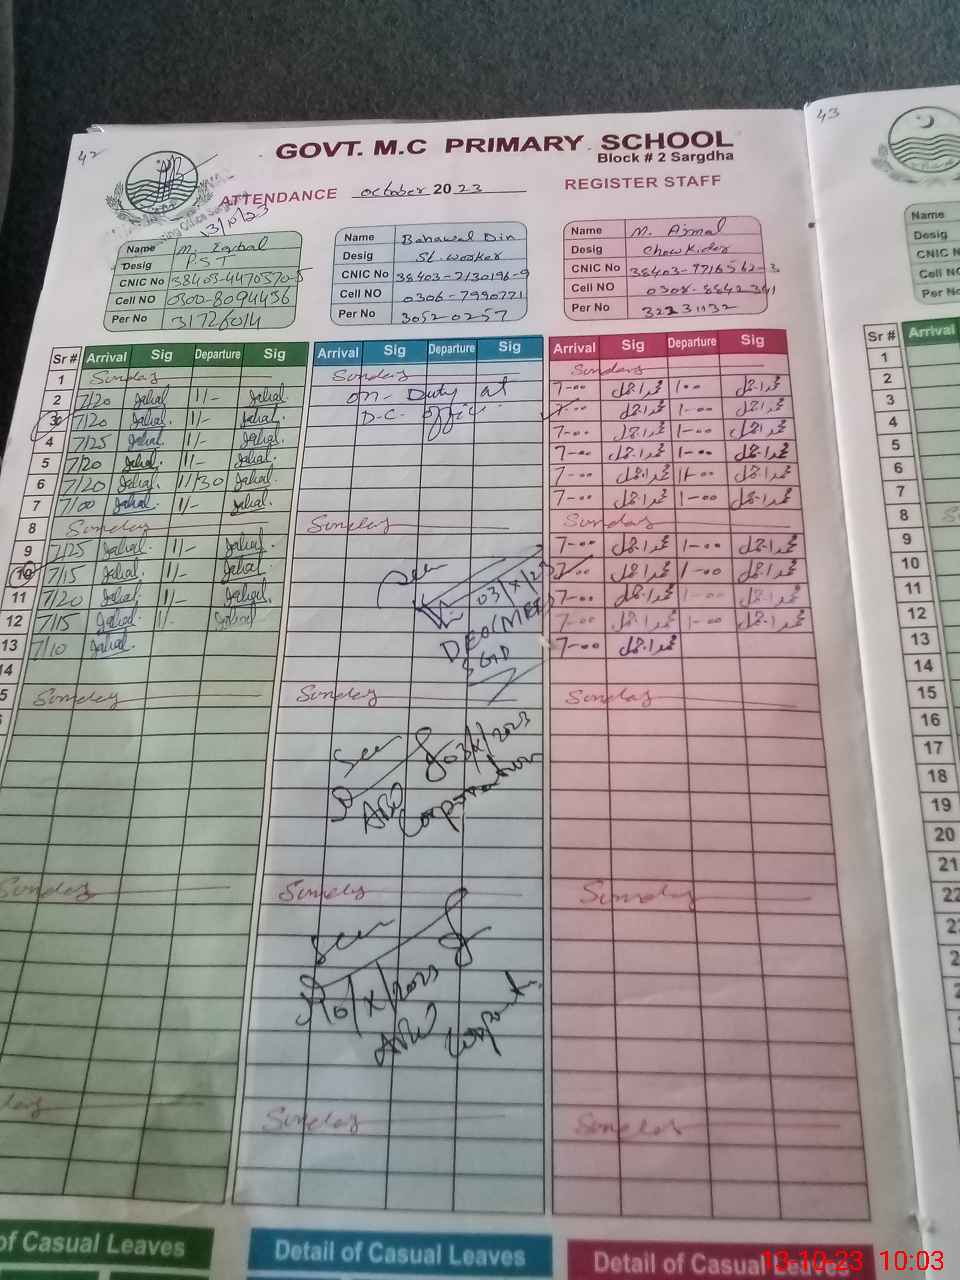 42
GOVT. M.C PRIMARY SCHOOL
Block # 2 Sargdha
ATTENDANCE October 2023 REGISTER STAFF
3/10/23
Name M. Iqbal
Desig P.S.T
CNIC No 38403-4470370-5
Cell NO 0300-8094456
Per No 31726014
Name Bahawal Din
Desig St. worker
CNIC No 38403-2130196-9
Cell NO 0306-7990771
Per No 30520257
Name M. Ajmal
Desig Chowkidar
CNIC No 38403-9716562-3
Cell NO 0308-8842341
Per No 32231132
Sr # Arrival Sig Departure Sig Arrival Sig Departure Sig Arrival Sig Departure Sig
1 Sunday Sunday Sunday
2 7/20 1/- on Duty at 7-00 محمد اجمل 1-00 محمد اجمل
3 7/20 1/- D.C. office 7-00 محمد اجمل 1-00 محمد اجمل
4 7/25 1/- 7-00 محمد اجمل 1-00 محمد اجمل
5 7/20 1/- 7-00 محمد اجمل 1-00 محمد اجمل
6 7/20 11/30 7-00 محمد اجمل 11-00 محمد اجمل
7 7/00 1/- 7-00 محمد اجمل 1-00 محمد اجمل
8 Sunday Sunday Sunday
9 7/25 1/- 7-00 محمد اجمل 1-00 محمد اجمل
10 7/15 1/- 7-00 محمد اجمل 1-00 محمد اجمل
11 7/20 1/- 7-00 محمد اجمل 1-00 محمد اجمل
12 7/15 1/- 7-00 محمد اجمل 1-00 محمد اجمل
13 7/10 7-00 محمد اجمل
14
15 Sunday Sunday Sunday
Seen
03/X/23
DEO(MEE)
SGD
Seen
03/X/2023
AEO
Corporation
Sunday Sunday Sunday
Seen
10/X/2023
AEO
Sunday Sunday
of Casual Leaves
Detail of Casual Leaves
Detail of Casual
43
Name
Desig
CNIC N
Cell N
Per No
Sr # Arrival
1
2
3
4
5
6
7
8
9
10
11
12
13
14
15
16
17
18
19
20
21
22
13-10-23 10:03